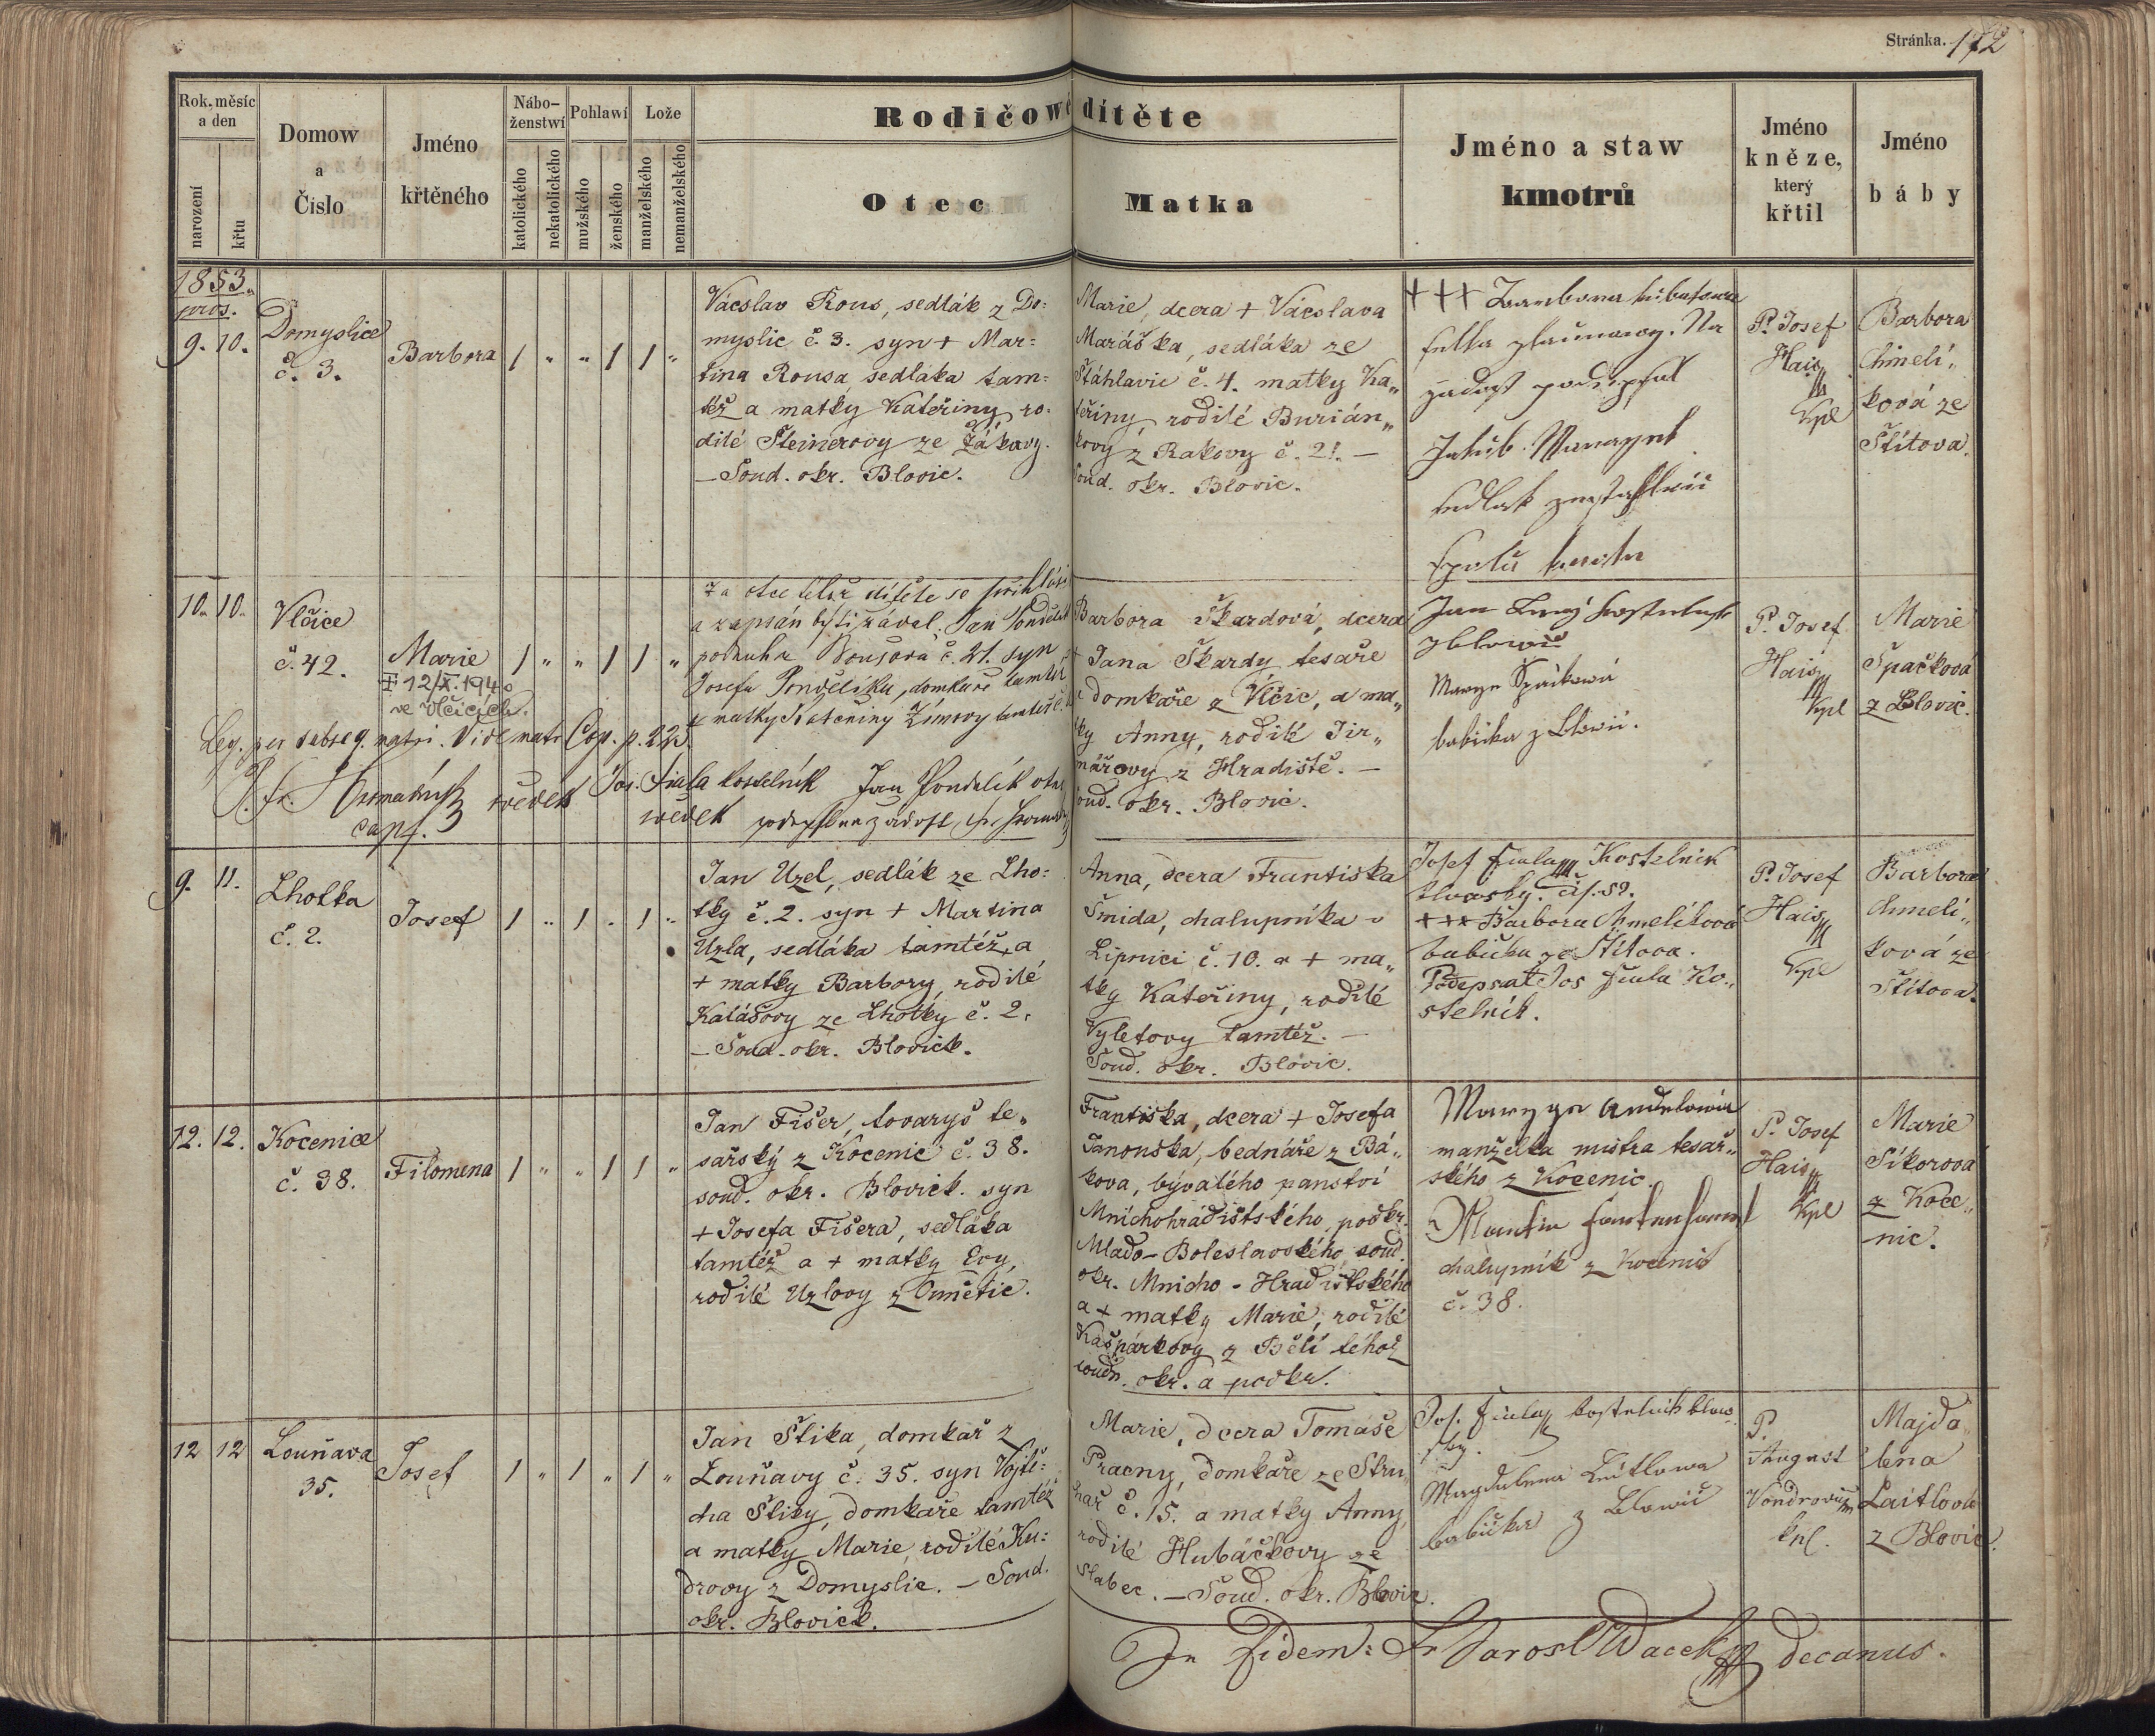 Stránka. 172
Rok, měsíc
a den
narození
křtu
Domow
a
Číslo
Jméno
křtěného
Nábo-
ženstwí
katolického
nekatolického
Pohlawí
mužského
ženského
Lože
manželského
nemanželského
Rodičowé dítěte
Otec
Matka
Jméno a staw
kmotrů
Jméno
kněze,
který
křtil
Jméno
báby
1853.
pros.
9. 10.
Domyslice
č. 3.
Barbora
1 " " 1 1 "
Václav Rous, sedlák z Do=
myslic č. 3. syn + Mar=
tina Rousa, sedláka tam=
též a matky Kateřiny, ro=
dilé Šteinerovy ze Žákavy.
– Soud. okr. Blovic.
Marie, dcera + Václava
Maráška, sedláka ze
Štáhlavic č. 4. matky Ka„
teřiny, rodilé Burián„
kovy z Rakovy č. 21. –
Soud. okr. Blovic.
+++ Barbora
Jakub
P. Josef
Hais
Kpl
Barbora
Chmelí„
ková ze
Štítova.
10. 10.
Vlčice
č. 42.
Marie
+ 12/X. 1940
ve Vlčicích.
1 " " 1 1 "
Za otce téhož dítěte se přihlásil
a zapsán býti žádal. Jan Pondělík
podruh č. 21. syn
Josefa Pondělíka, domkáře tamtéž
a matky Kateřiny Zímovy tamtéž č.
Leg. per subseq. matri. Vide matr. Cop. p. 223.
P. Fr.
cap.
svědek
Jos. Fiala kostelník
svědek
Jan Pondělík otec
Barbora Škardová, dcera
+ Jana Škardy, tesaře
a domkaře z Vlčic, a ma„
tky Anny, rodilé Jir„
nářovy z Hradiště. –
Soud. okr. Blovic.
Jan
z Blowic
Marye Špačkowá
babička z Blowic.
P. Josef
Hais
Kpl
Marie
Špačková
z Blovic.
9. 11.
Lhotka
č. 2.
Josef
1 " 1 " 1 "
Jan Uzel, sedlák ze Lho=
tky č. 2. syn + Martina
Uzla, sedláka tamtéž, a
+ matky Barbory, rodilé
Kalášovy ze Lhotky č. 2.
– Soud. okr. Blovick.
Anna, dcera Františka
Šmida, chalupníka v
Lipnici č. 10. a + ma„
tky Kateřiny, rodilé
Vyletovy tamtéž. –
Soud. okr. Blovic.
Josef Fiala Kostelník
čís. 59.
+++ Barbora Chmelíková
babička ze Štítova.
Podepsal Jos Fiala Ko„
stelník.
P. Josef
Hais
Kpl
Barbora
Chmelí„
ková ze
Štítova.
12. 12.
Kocenice
č. 38.
Filomena
1 " " 1 1 "
Jan Fišer, tovaryš te„
sařský z Kocenic č. 38.
soud. okr. Blovick. syn
+ Josefa Fišera, sedláka
tamtéž a + matky Evy,
rodilé Uzlovy z Čmětic.
Františka, dcera + Josefa
Janouška, bednáře z Bá„
kova, bývalého panství
Mnichohrádištského, podkr.
Mlado-Boleslavského, soud.
okr. Mnicho-Hradištského
a + matky Marie, rodilé
Kašpárkovy z Bělí téhož
soudn. okr. a podkr.
Marzya Andelowa
manželka mistra tesař„
ského z Kocenic.
Martin
chalupník z Kocenic
č. 38.
P. Josef
Hais
Kpl
Marie
Síkorova
z Koce„
nic.
12 12
Louňava
35.
Josef
1 " 1 " 1 "
Jan Štika, domkář z
Louňavy č. 35. syn Vojtě=
cha Štiky, domkaře tamtéž
a matky Marie, rodilé Ku=
drovy z Domyslic. – Soud.
okr. Blovick.
Marie, dcera Tomáše
Pracny, domkáře ze Stru„
har č. 15. a matky Anny,
rodilé Hubáčkovy ze
Slabec. – Soud. okr. Blovic.
Jos. Fiala kostelnik blow„
sky.
Magdalena Leitlowa
babička z Blowic
P.
August
kpl.
Majda„
lena
Laitlová
z Blovic.
In fidem: Fr Jarosl Wacek decanus.